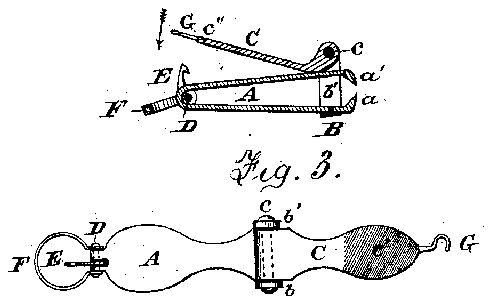 G c'' C c
E a'
A b' a
F D B
Fig. 3.
D c b'
F E A C c'' G
b